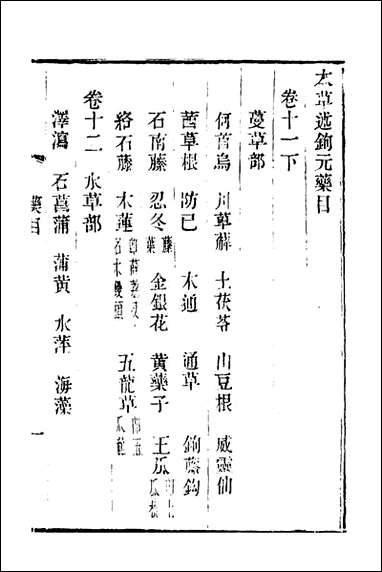 本草述鉤元藥目
卷十一下
蔓草部
何首烏 川萆薢 土茯苓 山豆根 威靈仙
茜草根 防己 木通 通草 鉤藤鉤
石南藤 忍冬藤葉 金銀花 黃藥子 王瓜
絡石藤 木蓮 五龍草
卷十二 水草部
澤瀉 石菖蒲 蒲黃 水萍 海藻
藥目 一